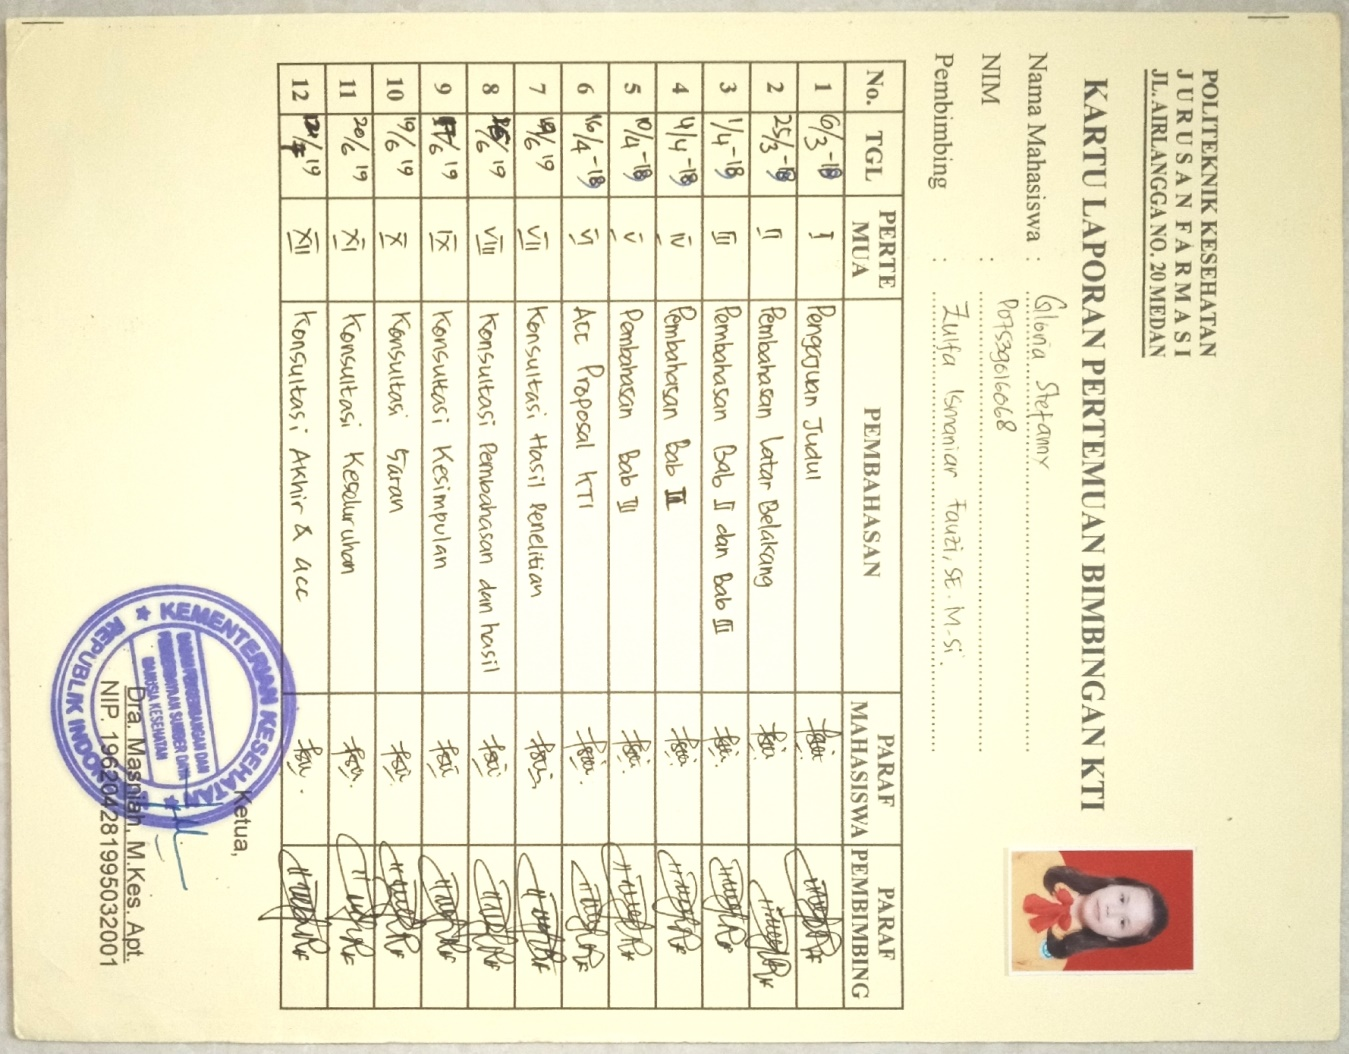 POLITEKNIK KESEHATAN
J U R U S A N F A R M A S I
JL. AIRLANGGA NO. 20 MEDAN
KARTU LAPORAN PERTEMUAN BIMBINGAN KTI
Nama Mahasiswa : Gloria Stefanny
NIM : P07539016068
Pembimbing : Zulfa Ismaniar Fauzi, SE. M-Si.
No. TGL PERTE MUA PEMBAHASAN PARAF MAHASISWA PARAF PEMBIMBING
1 6/3-18 I Pengajuan Judul
2 25/3-18 II Pembahasan Latar Belakang
3 1/4-18 III Pembahasan Bab II dan Bab III
4 4/4-18 IV Pembahasan Bab II
5 10/4-18 V Pembahasan Bab III
6 16/4-18 VI Acc Proposal KTI
7 /6 19 VII Konsultasi Hasil Penelitian
8 /6 19 VIII Konsultasi Pembahasan dan hasil
9 17/6 19 IX Konsultasi Kesimpulan
10 19/6 19 X Konsultasi Saran
11 20/6 19 XI Konsultasi Keseluruhan
12 19 XII Konsultasi Akhir & acc
Ketua,
KEMENTERIAN KESEHATAN
REPUBLIK INDONESIA
BADAN PENGEMBANGAN DAN
PEMBERDAYAAN SUMBER DAYA
MANUSIA KESEHATAN
Dra. Masniah, M.Kes. Apt.
NIP. 196204281995032001